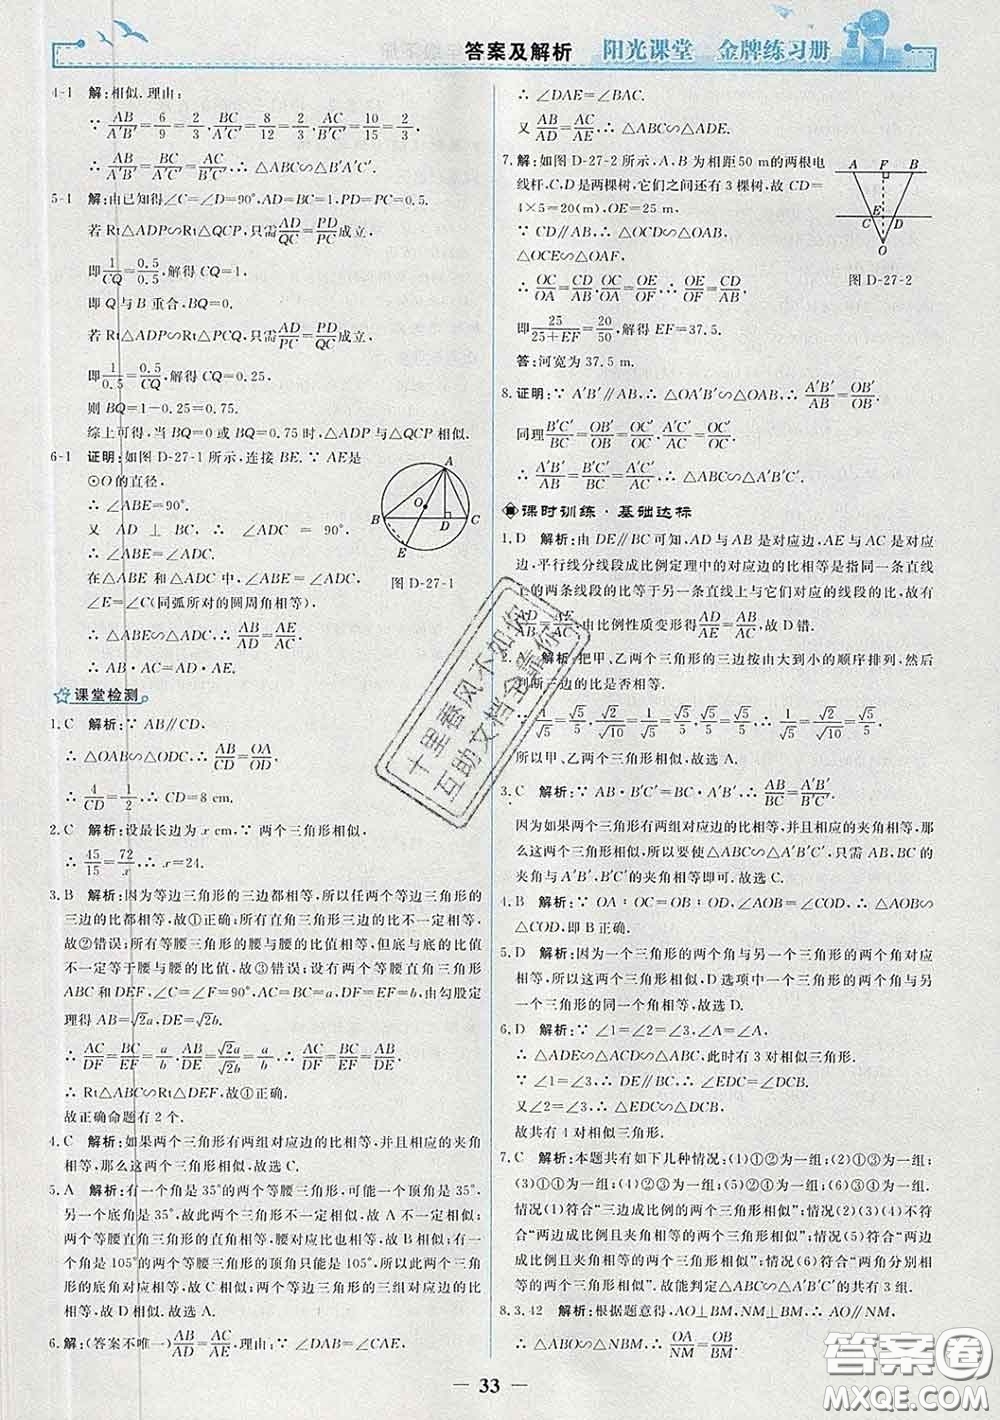 答案及解析 阳光课堂 金牌练习册
4-1 解:相似.理由:
∵ AB/A′B′=6/9=2/3,BC/B′C′=8/12=2/3,AC/A′C′=10/15=2/3,
∴ AB/A′B′=BC/B′C′=AC/A′C′,∴ △ABC∽△A′B′C′.
5-1 解:由已知得∠C=∠D=90°,AD=BC=1,PD=PC=0.5.
若 Rt△ADP∽Rt△QCP,只需AD/QC=PD/PC成立,
即1/CQ=0.5/0.5,解得 CQ=1,
即 Q 与 B 重合,BQ=0.
若 Rt△ADP∽Rt△PCQ,只需AD/PC=PD/QC成立,
即1/0.5=0.5/CQ,解得 CQ=0.25,
则 BQ=1-0.25=0.75.
综上可得,当 BQ=0 或 BQ=0.75 时,△ADP 与△QCP 相似.
6-1 证明:如图 D-27-1 所示,连接 BE.∵ AE是
⊙O 的直径,
∴ ∠ABE=90°.
又 AD ⊥ BC,∴ ∠ADC = 90°,
∴ ∠ABE=∠ADC.
在△ABE 和△ADC 中,∠ABE=∠ADC,
∠E=∠C(同弧所对的圆周角相等),
∴ △ABE∽△ADC,∴ AB/AD=AE/AC,
∴ AB·AC=AD·AE.
A
O
B D C
E
图 D-27-1
课堂检测
1.C 解析:∵ AB∥CD,
∴ △OAB∽△ODC,∴ AB/CD=OA/OD.
∴ 4/CD=1/2,∴ CD=8 cm.
2.C 解析:设最长边为 x cm,∵ 两个三角形相似,
∴ 45/15=72/x,∴ x=24.
3.B 解析:因为等边三角形的三边都相等,所以任两个等边三角形的
三边的比都相等,故①正确;所有直角三角形三边的比不一定相等,
故②错误;所有等腰三角形的腰与腰的比值相等,但底与底的比值
不一定等于腰与腰的比值,故③错误;设有两个等腰直角三角形
ABC 和 DEF,∠C=∠F=90°,AC=BC=a,DF=EF=b,由勾股定
理得 AB=√2a,DE=√2b.
∴ AC/DF=BC/EF=a/b.∵AB/DE=√2a/√2b=a/b,∴ AC/DF=BC/EF=AB/DE.
∴ Rt△ABC∽Rt△DEF,故①正确.
故正确命题有 2 个.
4.C 解析:如果两个三角形有两组对应边的比相等,并且相应的夹角
相等,那么这两个三角形相似,故选 C.
5.A 解析:有一个角是 35°的两个等腰三角形,可能一个顶角是 35°,
另一个底角是 35°,故此两个三角形不一定相似,故选 A;由于任意
两个等腰直角三角形的直角相等,对应边成比例也相等,故 B 相似;有一
个角是 105°的两个等腰三角形的顶角只能是 105°,所以此两个三角
形的底角对应相等,故 C 相似;两个等边三角形的三组对应边的比
相等,故 D 相似.故选 A.
6.解:(答案不唯一)AB/AD=AC/AE.理由:∵ ∠DAB=∠CAE,
∴ ∠DAE=∠BAC.
又 AB/AD=AC/AE,∴ △ABC∽△ADE.
7.解:如图 D-27-2 所示,A,B 为相距50 m的两根电
线杆,C,D 是两棵树,它们之间还有 3 棵树,故 CD=
4×5=20(m),OE=25 m.
∵ CD∥AB,∴ △OCD∽△OAB,
△OCE∽△OAF,
∴ OC/OA=CD/AB,OC/OA=OE/OF,∴ OE/OF=CD/AB,
即25/(25+EF)=20/50,解得 EF=37.5.
答:河宽为 37.5 m.
A F B
C E D
O
图 D-27-2
8.证明:∵ A′B′∥AB,∴ △OA′B′∽△OAB,∴ A′B′/AB=OB′/OB.
同理B′C′/BC=OB′/OB=OC′/OC,A′C′/AC=OC′/OC.
∴ A′B′/AB=B′C′/BC=A′C′/AC,∴ △ABC∽△A′B′C′.
课时训练·基础达标
1.D 解析:由 DE∥BC 可知,AD 与 AB 是对应边,AE 与 AC 是对应
边,平行线分线段成比例定理中的对应边的比相等是指同一条直线
上的两条线段的比等于另一条直线上与它们对应的线段的比,故有
AD/AB=AE/AC;由比例性质变形得AD/AE=AB/AC,故 D 错.
2.A 解析:把甲、乙两个三角形的三边按由大到小的顺序排列,然后
判断三边的比是否相等.
∵ 1/√5=√5/5,√2/√10=√5/5,√5/5=√5/5,∴ 1/√5=√2/√10=√5/5,
所以甲、乙两个三角形相似.
3.C 解析:∵ AB·B′C′=BC·A′B′,∴ AB/BC=A′B′/B′C′.
因为如果两个三角形有两组对应边的比相等,并且相应的夹角相等,那
么这两个三角形相似,所以要使△ABC∽△A′B′C′,只需 AB,BC 的
夹角与 A′B′,B′C′的夹角相等即可.故选 C.
4.B 解析:∵ OA∶OC=OB∶OD,∠AOB=∠COD,∴ △AOB∽
△COD,即 B 正确.
5.D 解析:因为一个三角形的两个角与另一个三角形的两个角对应
相等,所以这两个三角形相似,D 选项中一个三角形的两个角与另
一个三角形的同一个角相等,故选 D.
6.D 解析:∵ ∠1=∠2=∠3,∠A=∠A,
∴ △ADE∽△ACD∽△ABC,此时有 3 对相似三角形.
∵ ∠1=∠3,∴ DE∥BC,∴ ∠EDC=∠DCB.
又∠2=∠3,∴ △EDC∽△DCB.
故共有 4 对相似三角形.
7.C 解析:本题共有如下几种情况:(1)①②为一组;(2)①③为一组;
情况(1)符合“三边成比例的两个三角形相似”;情况(2)(3)(4)不符
合“两边成比例且夹角相等的两个三角形相似”;情况(5)符合“两边
成比例且夹角相等的两个三角形相似”;情况(6)符合“两角分别相
等的两个三角形相似”.故能判定△ABC∽△A′B′C′的共有 3 组.
8.3.42 解析:根据题意得,AO⊥BM,NM⊥BM,∴ AO∥NM,
∴ △ABO∽△NBM,∴ OA/NM=OB/BM.
— 33 —
十里春风不如你
互助文档全靠你
答案圈
MXQE.COM